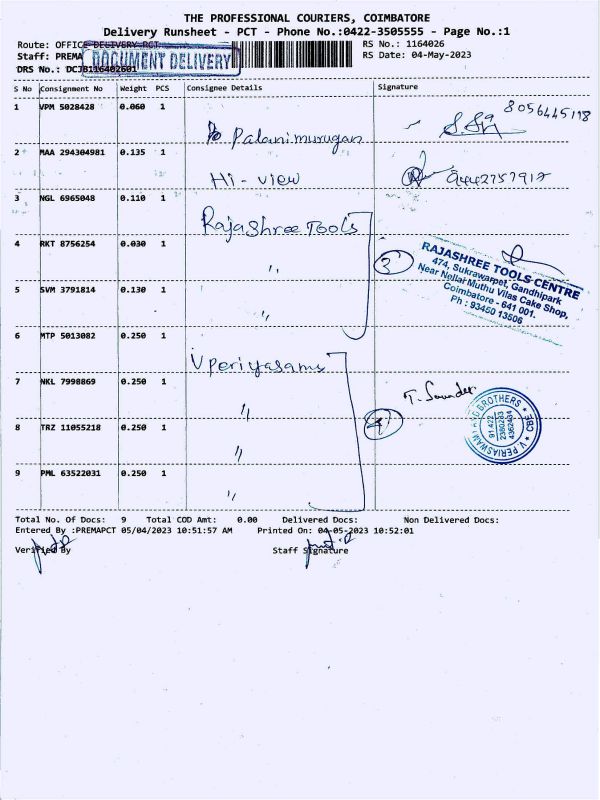 THE PROFESSIONAL COURIERS, COIMBATORE
Delivery Runsheet - PCT - Phone No.:0422-3505555 - Page No.:1
Route: OFFICE DELIVERY PCT
RS No.: 1164026
Staff: PREMA
DOCUMENT DELIVERY
RS Date: 04-May-2023
DRS No.: DCJB116402601
S No Consignment No Weight PCS Consignee Details Signature
1 VPM 5028428 0.060 1 Palanimurugan 8056445198
2 MAA 294304981 0.135 1 Hi-view 9442757912
3 NGL 6965048 0.110 1 RajaShree Tools
4 RKT 8756254 0.030 1 "
3
RAJASHREE TOOLS CENTRE
474, Sukrawarpet, Gandhipark
Near Nellai Muthu Vilas Cake Shop,
Coimbatore - 641 001.
Ph : 93450 13506
5 SVM 3791814 0.130 1 "
6 MTP 5013082 0.250 1 V periyasamy
7 NKL 7998869 0.250 1 "
T. Sounder
8 TRZ 11055218 0.250 1 "
4
V. PERIASWAMY BROTHERS
CBE
91 422
2380233
4362404
9 PML 63522031 0.250 1 "
Total No. Of Docs: 9 Total COD Amt: 0.00 Delivered Docs: Non Delivered Docs:
Entered By :PREMAPCT 05/04/2023 10:51:57 AM Printed On: 04-05-2023 10:52:01
Verified By Staff Signature